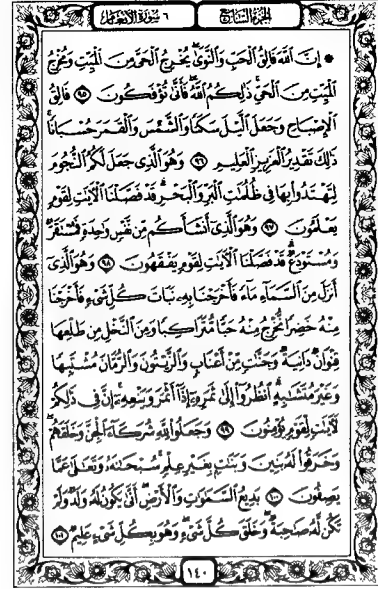 الجزء السابع ٦ سورة الأنعام
۞ إِنَّ ٱللَّهَ فَالِقُ ٱلْحَبِّ وَٱلنَّوَىٰ يُخْرِجُ ٱلْحَيَّ مِنَ ٱلْمَيِّتِ وَمُخْرِجُ
ٱلْمَيِّتِ مِنَ ٱلْحَيِّ ذَٰلِكُمُ ٱللَّهُ فَأَنَّىٰ تُؤْفَكُونَ ٩٥ فَالِقُ
ٱلْإِصْبَاحِ وَجَعَلَ ٱلَّيْلَ سَكَنًا وَٱلشَّمْسَ وَٱلْقَمَرَ حُسْبَانًا
ذَٰلِكَ تَقْدِيرُ ٱلْعَزِيزِ ٱلْعَلِيمِ ٩٦ وَهُوَ ٱلَّذِي جَعَلَ لَكُمُ ٱلنُّجُومَ
لِتَهْتَدُوا۟ بِهَا فِي ظُلُمَٰتِ ٱلْبَرِّ وَٱلْبَحْرِ قَدْ فَصَّلْنَا ٱلْءَايَٰتِ لِقَوْمٍ
يَعْلَمُونَ ٩٧ وَهُوَ ٱلَّذِيٓ أَنشَأَكُم مِّن نَّفْسٍ وَٰحِدَةٍ فَمُسْتَقَرٌّ
وَمُسْتَوْدَعٌ قَدْ فَصَّلْنَا ٱلْءَايَٰتِ لِقَوْمٍ يَفْقَهُونَ ٩٨ وَهُوَ ٱلَّذِيٓ
أَنزَلَ مِنَ ٱلسَّمَآءِ مَآءً فَأَخْرَجْنَا بِهِۦ نَبَاتَ كُلِّ شَيْءٍ فَأَخْرَجْنَا
مِنْهُ خَضِرًا نُّخْرِجُ مِنْهُ حَبًّا مُّتَرَاكِبًا وَمِنَ ٱلنَّخْلِ مِن طَلْعِهَا
قِنْوَانٌ دَانِيَةٌ وَجَنَّٰتٍ مِّنْ أَعْنَابٍ وَٱلزَّيْتُونَ وَٱلرُّمَّانَ مُشْتَبِهًا
وَغَيْرَ مُتَشَٰبِهٍ ٱنظُرُوٓا۟ إِلَىٰ ثَمَرِهِۦٓ إِذَآ أَثْمَرَ وَيَنْعِهِۦٓ إِنَّ فِي ذَٰلِكُمْ
لَءَايَٰتٍ لِّقَوْمٍ يُؤْمِنُونَ ٩٩ وَجَعَلُوا۟ لِلَّهِ شُرَكَآءَ ٱلْجِنَّ وَخَلَقَهُمْ
وَخَرَقُوا۟ لَهُۥ بَنِينَ وَبَنَٰتٍ بِغَيْرِ عِلْمٍ سُبْحَٰنَهُۥ وَتَعَٰلَىٰ عَمَّا
يَصِفُونَ ١٠٠ بَدِيعُ ٱلسَّمَٰوَٰتِ وَٱلْأَرْضِ أَنَّىٰ يَكُونُ لَهُۥ وَلَدٌ وَلَمْ
تَكُن لَّهُۥ صَٰحِبَةٌ وَخَلَقَ كُلَّ شَيْءٍ وَهُوَ بِكُلِّ شَيْءٍ عَلِيمٌ ١٠١
١٤٠